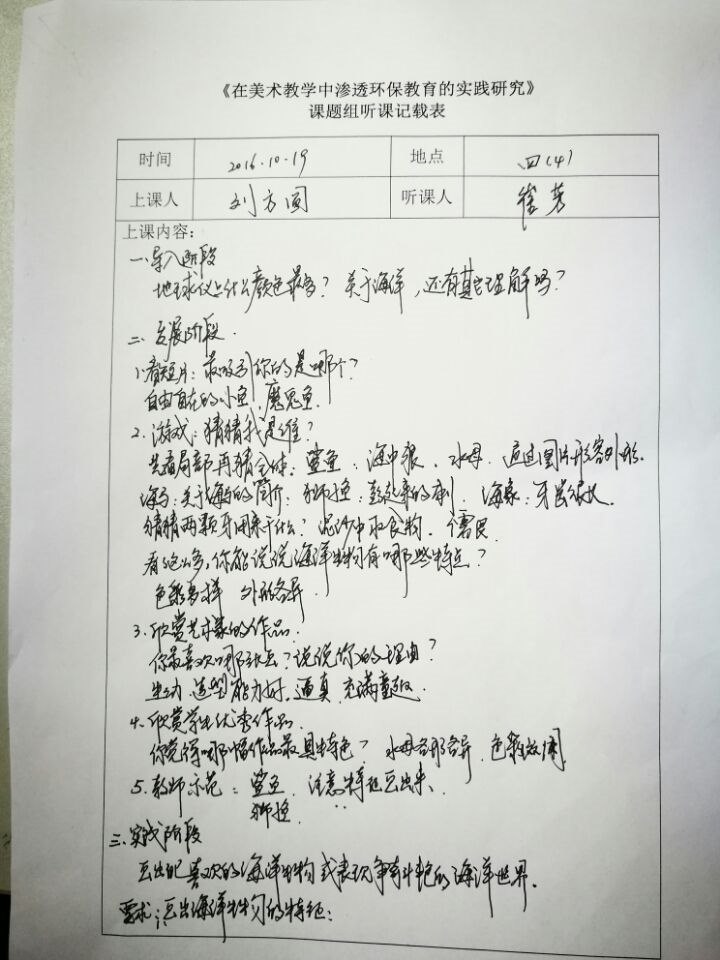 《在美术教学中渗透环保教育的实践研究》
课题组听课记载表
时间 2016.10.19 地点 四(4)
上课人 刘方圆 听课人 崔芳
上课内容:
一、导入阶段
地球仪上什么颜色最多？关于海洋，还有其它理解吗？
二、发展阶段.
1.看短片:最吸引你的是哪个？
自由自在的小鱼,魔鬼鱼.
2.游戏:猜猜我是谁？
先看局部再猜全体:鲨鱼.海中狼.水母.通过图片形容外形.
海马:关于海马的简介:狮捨: 的 海象:牙齿很长
猜猜两颗牙用来干什么？泥沙中取食物.
看这么多,你能说说海洋生物有哪些特点？
色彩多样 外形各异.
3.欣赏艺术家的作品.
你最喜欢哪张画？说说你的理由？
生动.造型能力好.逼真.充满童趣.
4.欣赏学生优秀作品.
你觉得哪幅作品最具特色？水母各形各异.色彩
5.教师示范:鲨鱼.注意特征画出来、
狮
三、实践阶段
画出自己喜欢的海洋生物或表现争奇斗艳的海洋世界.
要求:画出海洋生物的特征: